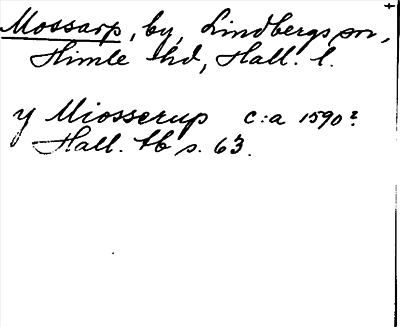 Mossarp, by, Lindbergs sn,
Himle hd, Hall. l.
y Miosserup c:a 1590?
Hall. tb s. 63.